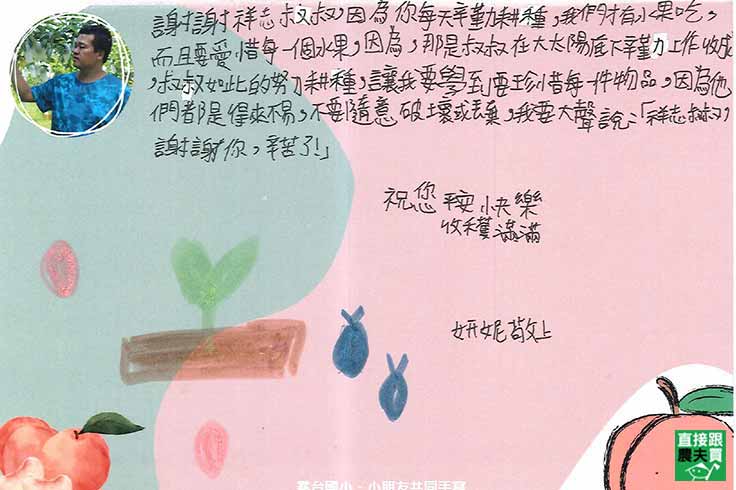 謝謝祥志叔叔,因為你每天辛勤耕種,我們才有水果吃,
而且要愛惜每一個水果,因為,那是叔叔在大太陽底下辛勤工作收成
,叔叔如此的努力耕種,讓我要學到要珍惜每一件物品,因為他
們都是得來不易,不要隨意破壞或丟棄,我要大聲說:「祥志叔叔,
謝謝你,辛苦了!」
祝您平安快樂
收穫滿滿
妍妮敬上
直接跟
農夫買
台國小-小朋友共同手寫